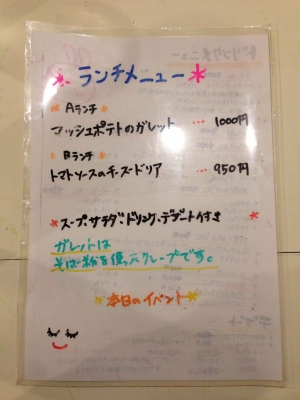 ＊ランチメニュー＊
Aランチ
マッシュポテトのガレット … 1000円
Bランチ
トマトソースのチーズドリア … 950円
＊スープ・サラダ・ドリンク・デザート付き＊
ガレットは
そば粉を使ったクレープです。
＊本日のイベント＊